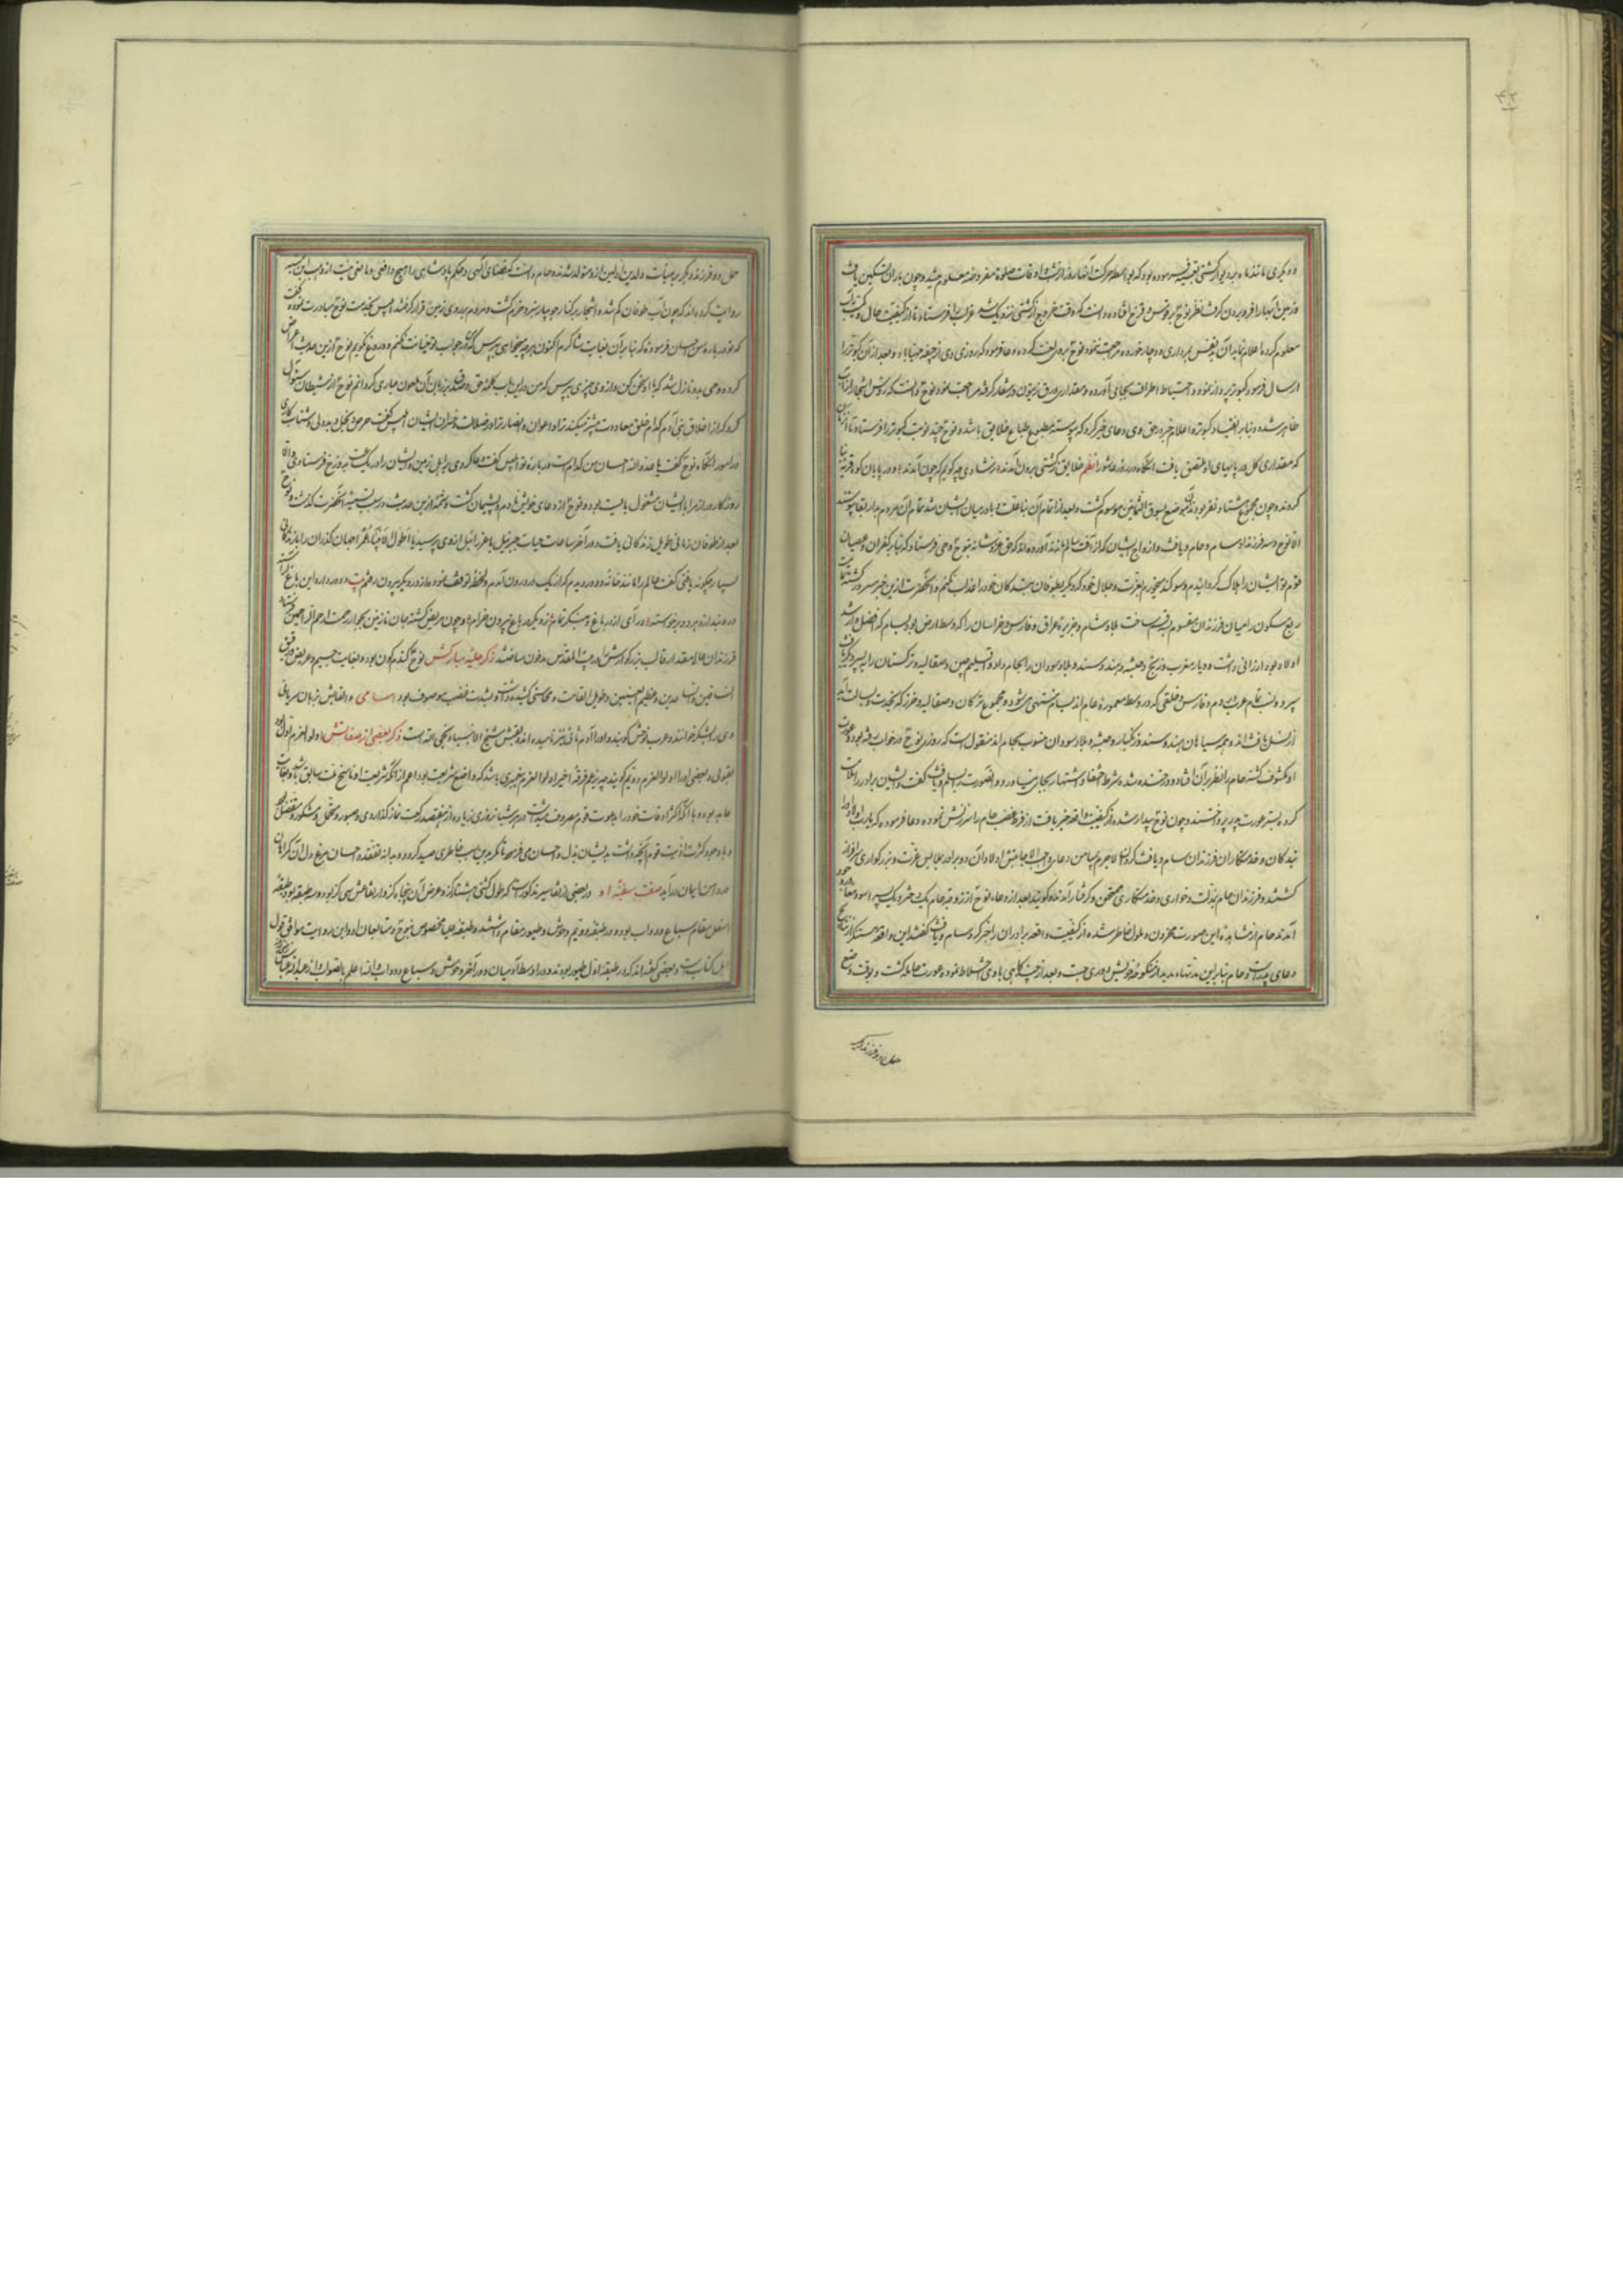 ۴۲
و دیگری مانند ماه بر دیوار کشتی تعبیه فرموده بود که بواسطه حرکت آنها روز از شب و اوقات صلوة مفروضه معلوم میشد و چون باران تسکین یافت
و زمین آبها را فرو بردن گرفت نظر نوح بر قوس قزح افتاده دانست که وقت خروج از کشتی نزدیک شد غراب را فرستاد تا از کیفیت حال و کمیت آب
معلوم کرده اعلام نماید آن
ارسال فرمود کبوتر پرواز نموده و احتیاط اطراف بجای آورده و مقداری ورق زیتون در منقار گرفته مراجعت نمود نوح دانست که رؤس اشجار از آب
ظاهر شده و بنابر انقیاد کبوتر و اعلام خبر در حق وی دعای خیر کرد که پیوسته مطبوع طباع خلایق باشد و نوح چند نوبت کبوتر را فرستاد تا
که مقداری گل در پایهای او ملتصق یافت آنگاه در روز عاشورا نظم خلایق ز کشتی برون آمدند ز شادی چه گویم که چون آمدند و در پایان کوه قریه بنا
کردند و چون مجموع هشتاد نفر بودند آن موضع بسوق الثمانین موسوم گشت و بعد از اتمام آن بنا علت وبا در میان ایشان پیدا شد تمام آن مردم بدار بقا پیوستند
الا نوح و سه فرزند او سام و حام و یافث و ازواج ایشان که از آفت سالم ماندند آورده اند که حق عز و شانه بنوح وحی فرستاد که بنابر کفران و عصیان
قوم تو ایشان را هلاک گردانیدم و سوگند میخورم بعزت و جلال خود که دیگر بطوفان بندگان خود را عذاب نکنم و آنحضرت ازین خبر مسرور گشته
ربع مسکون را میان فرزندان مقسوم قسمت ساخت بلاد شام و جزیره و عراق و فارس و خراسان را که وسط ارض بود بسام که افضل و ارشد
اولاد بود ارزانی داشت و دیار مغرب و زنج و حبشه و هند و سند و بلاد سودان را بحام داد و اقلیم چین و صقالیه و ترکستان را به
سپرد و نسب تمام عرب و روم و فارس و خلقی که در وسط معموره عالم اند بسام منتهی می شود و مجموع ترکان و صقالیه و خزر
از نسل یافث اند و همه سیاهان هند و سند و زنگبار و حبشه و بلاد سودان منسوب بحام اند منقول است که روزی نوح در خواب رفته بود و عورت
او مکشوف گشته حام را نظر بر آن افتاد و در خنده شد و شرط اخفا و استتار بجای نیاورد و آنصورت را بسام و یافث گفت و ایشان برادر را ملامت
کرده بستر عورت پدر پرداختند و چون نوح بیدار شده از کیفیت واقعه خبر یافت از فرط غضب حام را سرزنش نموده دعا فرمود که یا رب اولاد او را
بندگان و خدمتکاران فرزندان سام و یافث گردان لاجرم بیامن دعای واجب الاجابتش اولاد آن دو برادر بملابس عزت و بزرگواری سرافراز
گشتند و فرزندان حام بذلت و خواری و خدمتکاری ممتحن و گرفتار آمدند و گویند بعد از دعاء نوح از زوجه حام یک دختر و یک پسر اسود
آمدند حام از مشاهده این صورت محزون و ملول خاطر شده از کیفیت واقعه برادران را مخبر کرد سام و یافث گفتند این واقعه مستنکر از نتایج
دعای پدرست و حام بنابر این مدتها مدید از منکوحه خویش دوری جست و بعد از چند گاهی با وی اختلاط نمود و عورت حامله گشت و بوقت وضع
حمل دو فرزند دیگر
حمل دو فرزند دیگر بر هیئات والدین اولین ازو متولد شدند و حام دانست که مقتضای الهی و حکم پادشاهی را هیچ دافعی و مانعی نیست از وهب ابن منبه
روایت کرده اند که چون آب طوفان کم شده و اشجار بر کنار جویبار سبز و خرم گشت و مردم بر روی زمین قرار گرفتند ابلیس بخدمت نوح مبادرت نموده گفت
که تو درباره من احسان فرمودهٔ که بنابر آن بغایت شاکرم اکنون هر چه میخواهی بپرس که در جواب تو خیانت نکنم و دروغ نگویم نوح ازین حدیث اعراض
کرده وحی بدو نازل شد که با او سخن کن و از وی چیزی بپرس که من درین باب کلمه حق و صدق بر زبان آن ملعون جاری گردانم نوح از شیطان سؤال
کرد که از اخلاق بنی آدم کدام خلق معاونت بیشتر میکند ترا و اعوان و انصار ترا در ضلالت و خسران ایشان ابلیس گفت حرص و بخل و بددلی و شتاب کاری
در امور آنگاه نوح گفت یا عدو الله احسان من کدام است درباره تو ابلیس گفت دعا کردی بر اهل زمین و ایشان را در یک ساعت بدوزخ فرستادی والا
روزگار دراز مرا با ایشان مشغول بایست بود و نوح از دعای خویش نادم و پشیمان گشت و
بعد از طوفان زمانی طویل زندگانی یافت و در آخر ساعات حیات جبرئیل یا عزرائیل از وی پرسید یا اطول الانبیاء عمرا جهان گذران را
بسیار چگونه یافتی گفت عالم را مانند خانه دو در دیدم که از یک در درون آمدم و لحظه توقف نموده از در دیگر بیرون رفتم بیت دو در دارد این باغ آراسته
در و بند ازو هر دو برخاسته در آی از در باغ و بنگر تمام ز دیگر در باغ بیرون خرام و چون مریض گشته جان نازنین بجوار رحمت ارحم الراحمین
فرزندان عالی مقدار قالب بزرگوارش را در بیت المقدس مدفون ساختند ذکر حلیه مبارکش نوح گندم گون بود و بغایت جسیم و عریض و رقیق
الساقین و الساعدین و عظیم العینین و طویل القامت و محاسنی کشیده داشته و بشدت غضب موصوف بود اسامی و القابش بزبان سریانی
وی را یشکر خوانند و عرب نوحش گویند و او را آدم ثانی نیز نامیده اند و لقبش شیخ الانبیاء و نجی الله است ذکر بعضی از صفاتش او اولوالعزم اول
بقولی و بعضی او را اولوالعزم دویم گویند
عابد بود و با آنکه اکثر اوقات خود را بدعوت قوم مصروف میداشت در هر شبانه روزی زیاده از هفتصد رکعت نماز گذاردی و صبور و متحمل و شکور
و با وجود کثرت اذیت قوم آنچه داشت بدیشان بذل و احسان می فرمود تا مگر بدین سبب خاطری صید گردد و بدانه تفقد و احسان مرغ دل آن گمراهان
در دام ایمان درآید صفت سفینه او در بعضی از تفاسیر مذکورست که طول کشتی هشتاد گز و عرض آن پنجاه گز و ارتفاعش سی گز بود و سه طبقه بود طبقه
اسفل مقام سباع و دواب بوده و در طبقه دویم وحوش و طیور مقام داشتند و طبقه علیا مخصوص بنوح و متابعان او و این روایت موافق قول
اهل کتاب است و بعضی گفته اند که در طبقه اول طیور بودند و در اوسط آدمیان و در آخر وحوش و سباع و دواب والله اعلم بالصواب